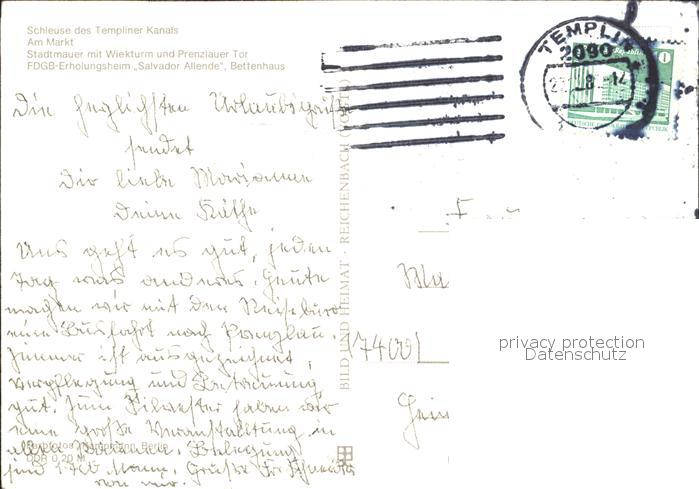 Schleuse des Templiner Kanals
Am Markt
Stadtmauer mit Wiekturm und Prenzlauer Tor
FDGB-Erholungsheim „Salvador Allende", Bettenhaus
TEMPLIN
2090
Die herzlichsten Urlaubsgrüße
sendet
Dir liebe Marianne
Deine Käthe
Uns geht es gut, jeden
Tag was anderes. Heute
machen wir mit dem Reisebüro
eine Busfahrt nach Prenzlau.
Zimmer ist ausgezeichnet,
Verpflegung und Betreuung
gut. Zum Silvester haben wir
eine große Veranstaltung in
allen Belegung
sind Mann. Grüße
von mir.
BILD UND HEIMAT · REICHENBACH (VOGTL)
Ma
(7400)
privacy protection
Datenschutz
Gei
Farbfotos Berlin
DDR 0,20 M